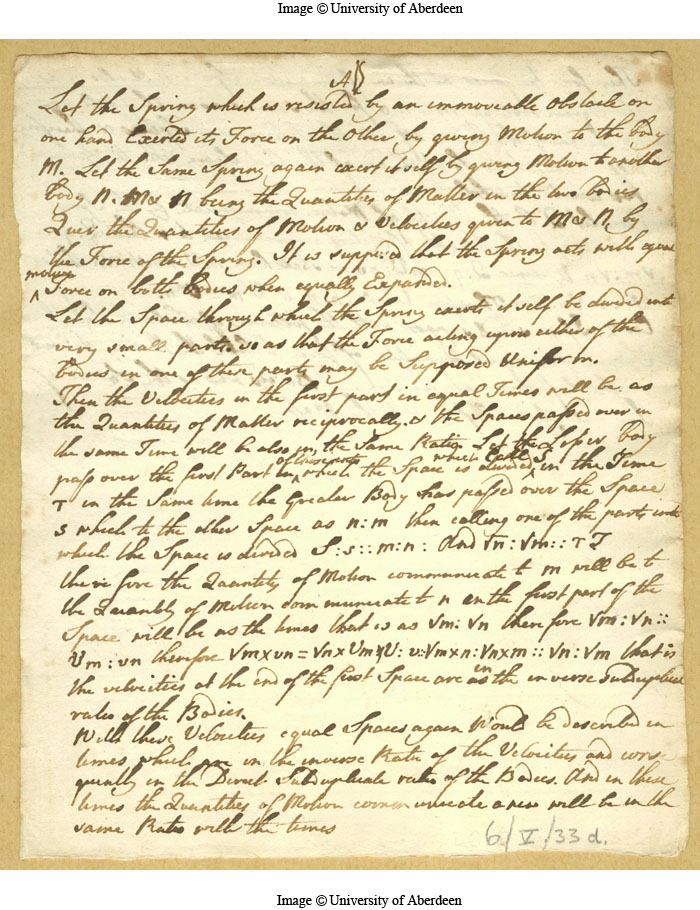 Image © University of Aberdeen
Let the Spring which is resisted by an immoveable Obstacle on
one hand Exerted its Force on the Other by giving Motion to the body
M. Let the Same Spring again exert itself by giving Motion to another
body N. M & N being the Quantities of Matter in the two bodies
Quer the Quantities of Motion & Velocities given to M & N by
the Force of the Spring. It is supposed that the Spring acts with equal
motive
^ Force on both bodies when equally Expanded.
Let the Space through which the Spring exerts it self be divided into
very small parts so as that the Force acting upon either of the
bodies in one of these parts may be Supposed Uniform.
Then the Velocities in the first part in equal Times will be as
the Quantities of Matter reciprocally. & the Spaces passed over in
the same Time will be also in the Same Ratio Let the Lesser body
pass over the first Part in ^ of these parts which the Space is divided ^ which call S in the Time
T in the Same time the Greater Body has passed over the Space
s which to the other Space as n:m then calling one of the parts into
which the Space is divided S:s::m:n: And √n:√m::T
therefore the Quantity of Motion communicate to m will be to
the Quantity of Motion communicate to n in the first part of the
Space will be as the times that is as √m:√n therefore √m:√n::
Vm:vn therefore √m×vn=√n×Vm & V:v:√m×n:√n×m::√n:√m that is
the velocities at the end of the first Space are in the inverse Subduplicate
ratio of the Bodies.
With these Velocities equal Spaces again Would be described in
times which are in the inverse Ratio of the Velocities and conse
quently in the Direct Subduplicate ratio of the Bodies. And in these
times the Quantities of Motion communicate anew will be in the
same Ratio with the times
6/V/33 d.
Image © University of Aberdeen